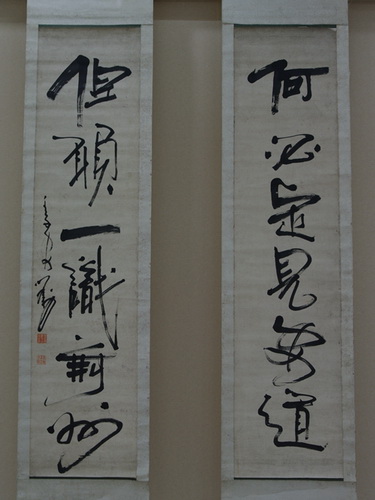 何必定見安道
但願一識荊州